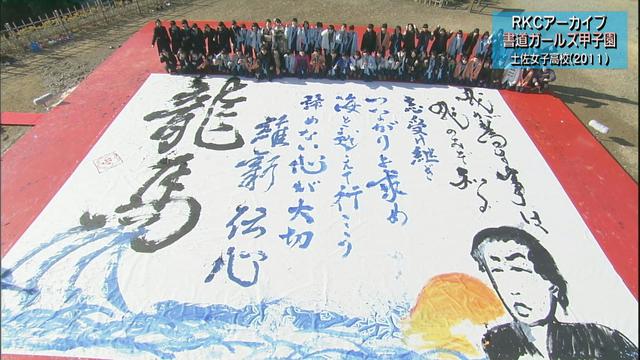 RKCアーカイブ
書道ガールズ甲子園
土佐女子高校(2011)
我が為す事は
我のみぞ知る
志受け継ぎ
つながりを求め
海を越えて行こう
諦めない心が大切
維新伝心
龍馬